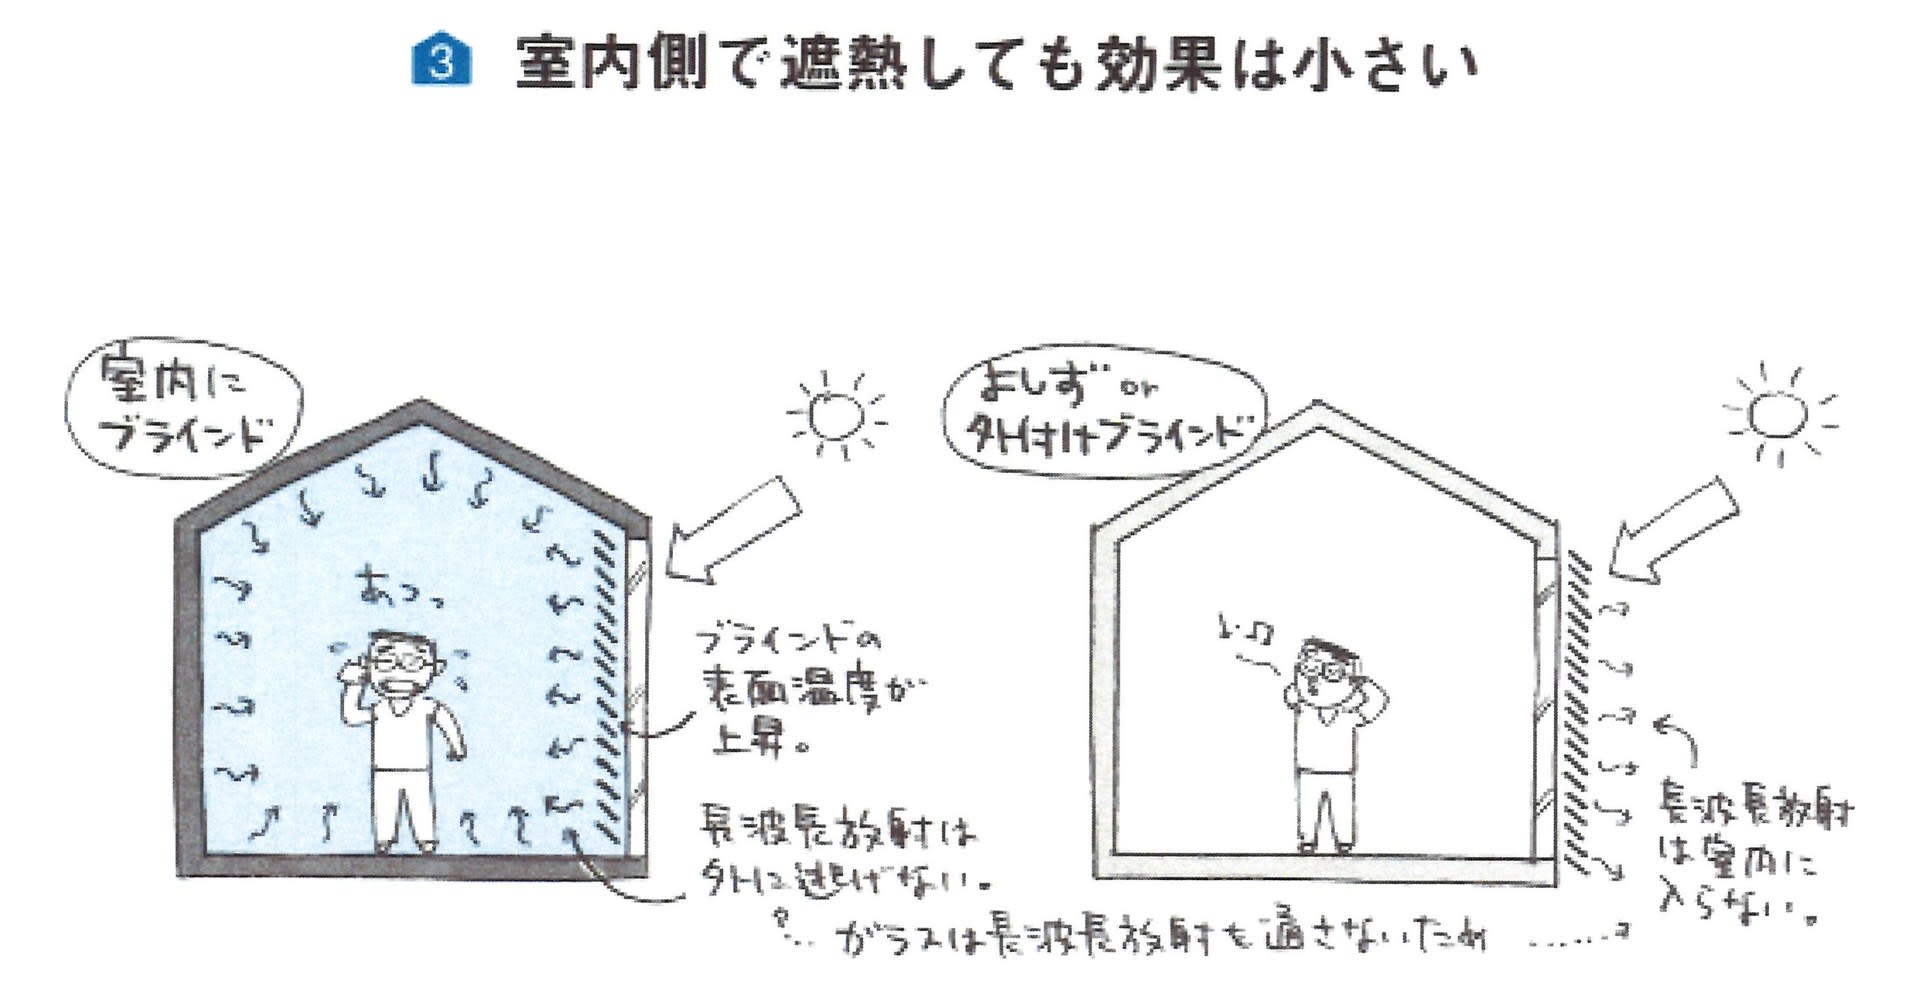 3 室内側で遮熱しても効果は小さい
室内に
ブラインド
あつっ
ブラインドの
表面温度が
上昇。
長波長放射は
外に逃げない。
よしず or
外付けブラインド
長波長放射
は室内に
入らない。
ガラスは長波長放射を通さないため